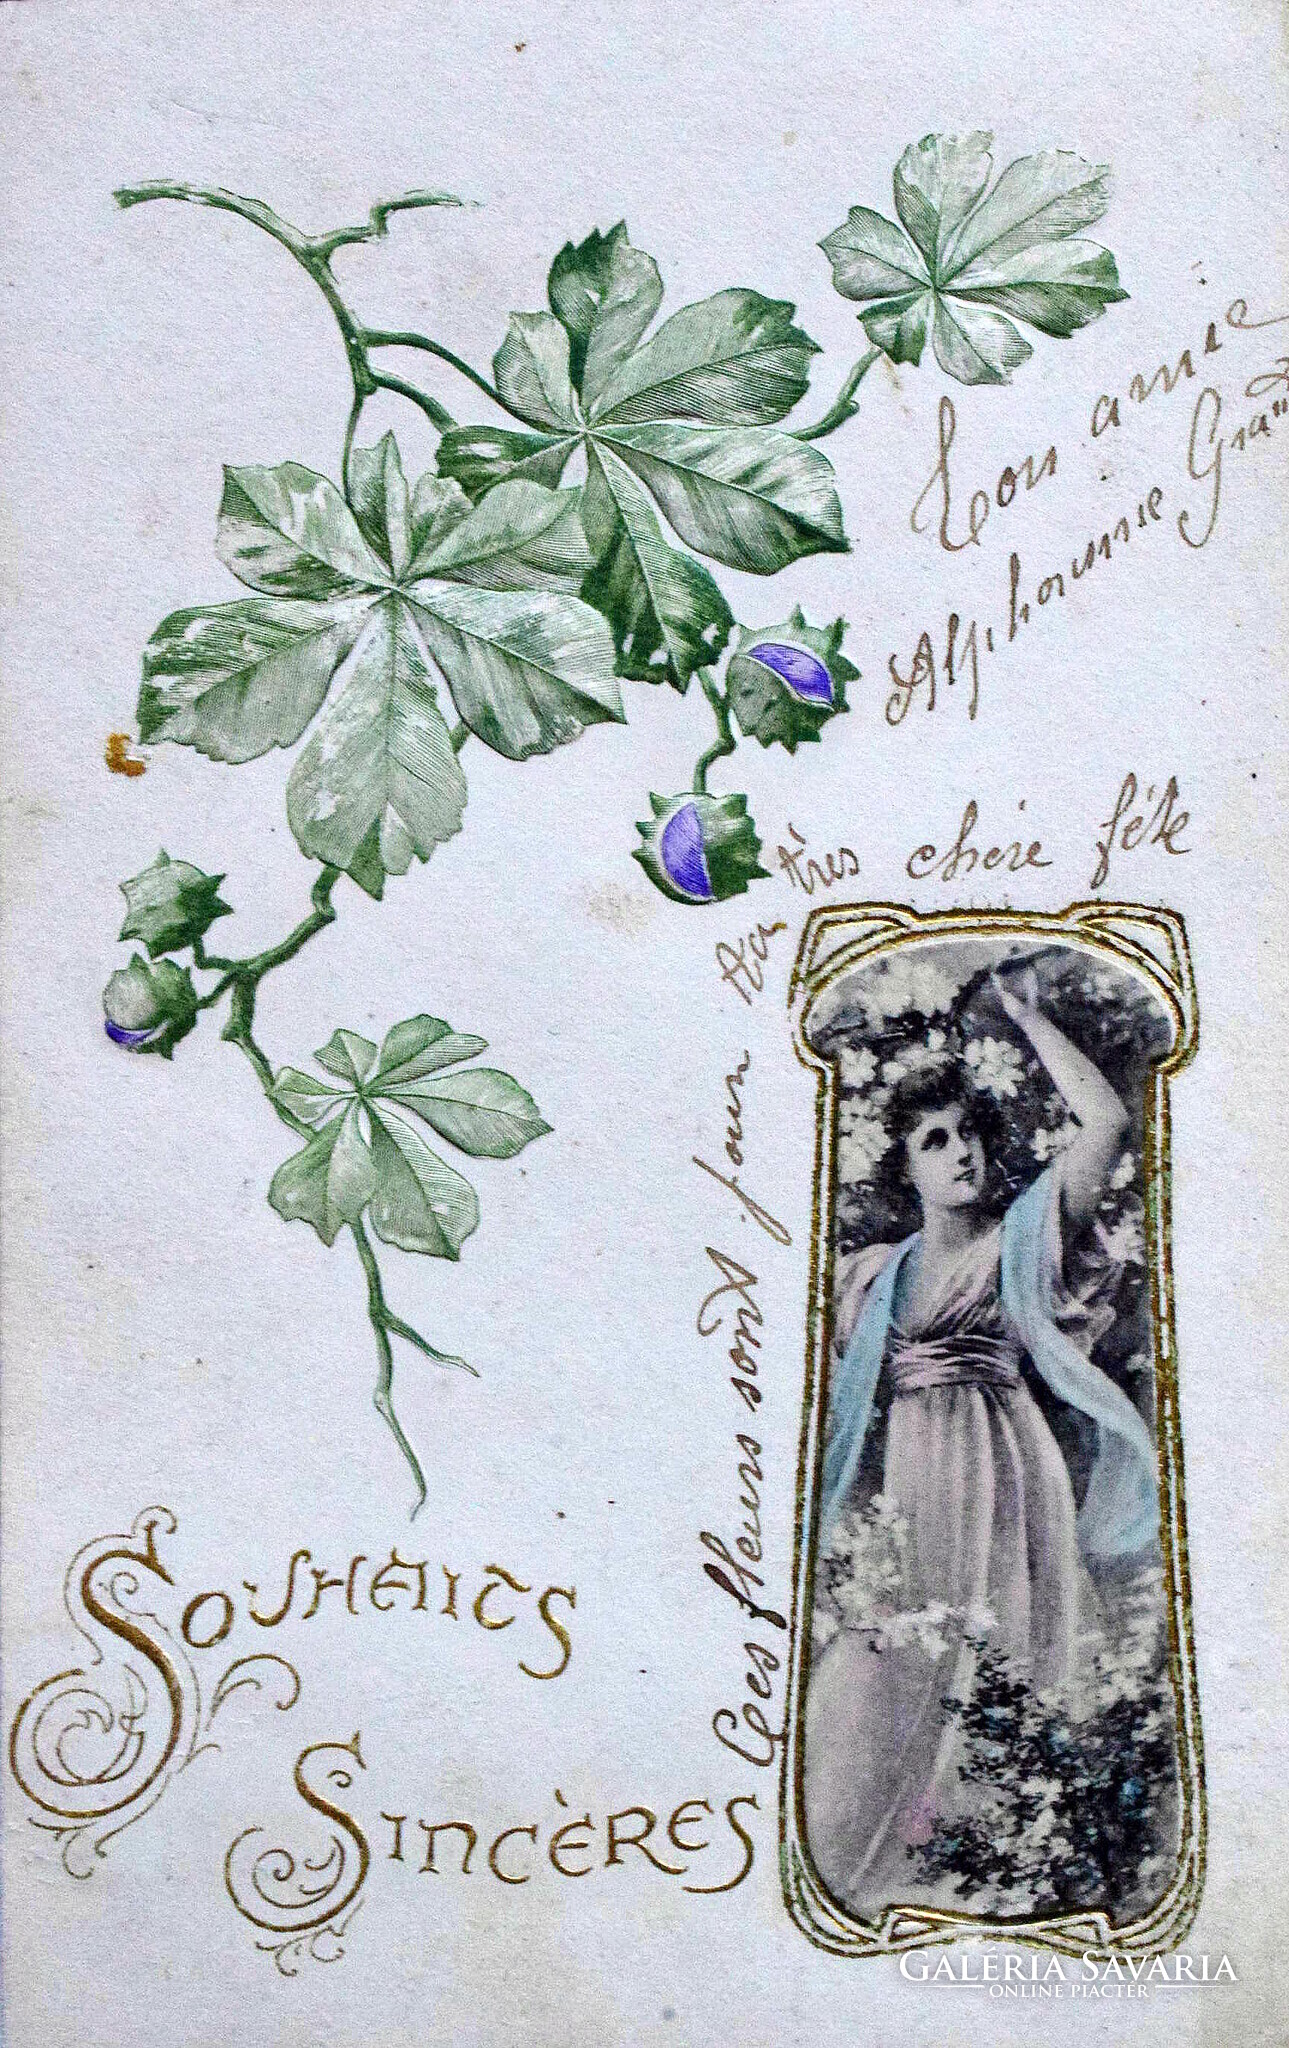 Ton amie
Alphonsine
Ces fleurs sont pour ta très chère fête
SOUHAITS
SINCÈRES
GALÉRIA SAVARIA
ONLINE PIACTÉR